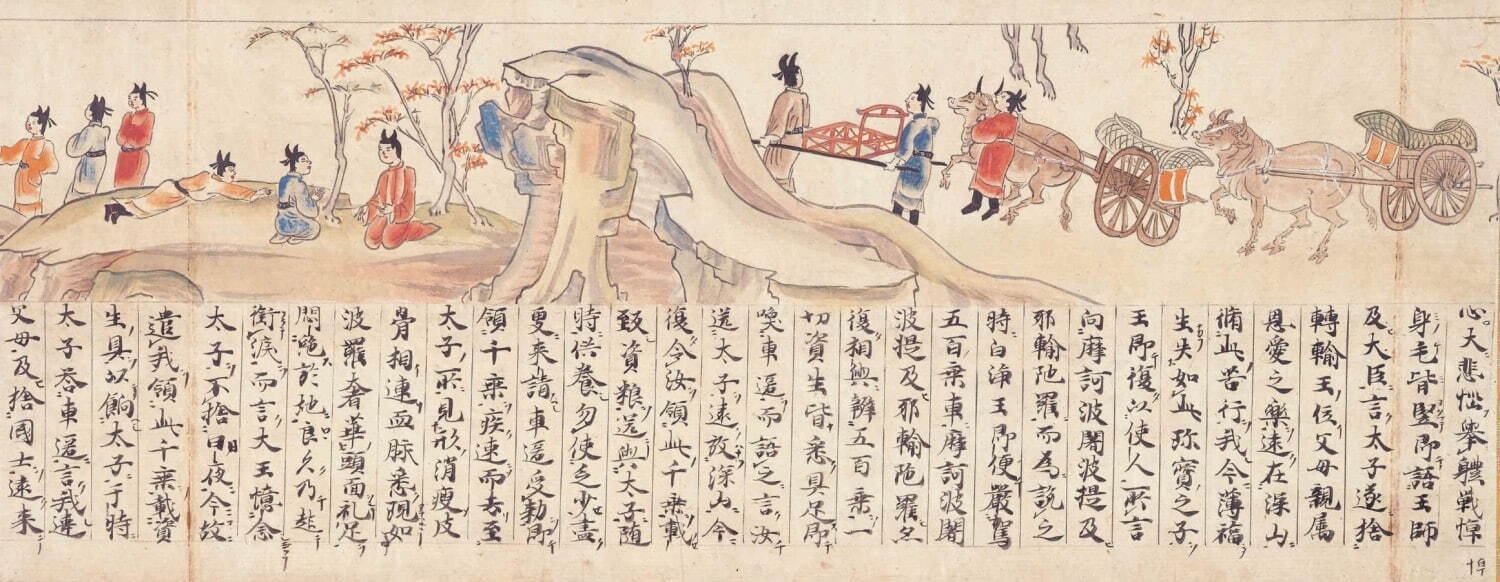 心大悲惱舉體戰悼
身毛皆竪即語王師
及大臣言太子遂捨
轉輪王位父母親属
恩愛之樂遠在深山
脩此苦行我今薄福
生失如此珎寶之子
王即復以使人所言
向摩訶波闍波提及
耶輸陁羅而為說之
時白淨王即便嚴駕
五百乘車摩訶波闍
波提及耶輸陁羅亦
復相與辦五百乘一
切資生皆悉具足即
喚車匿而語之言汝
送太子遠放深山今
復令汝領此千乘載
致資粮送與太子随
時供養勿使乏少盡
更來請車匿受勑即
領千乘疾速而去至
太子所見形消瘦皮
骨相連血脉悉現如
波羅奢華頭面礼足
悶絶於地良久乃起
銜淚而言大王憶念
太子不捨日夜今故
遣我領此千乘載資
生具以餉太子于時
太子荅車匿言我違
父母及捨國土遠来